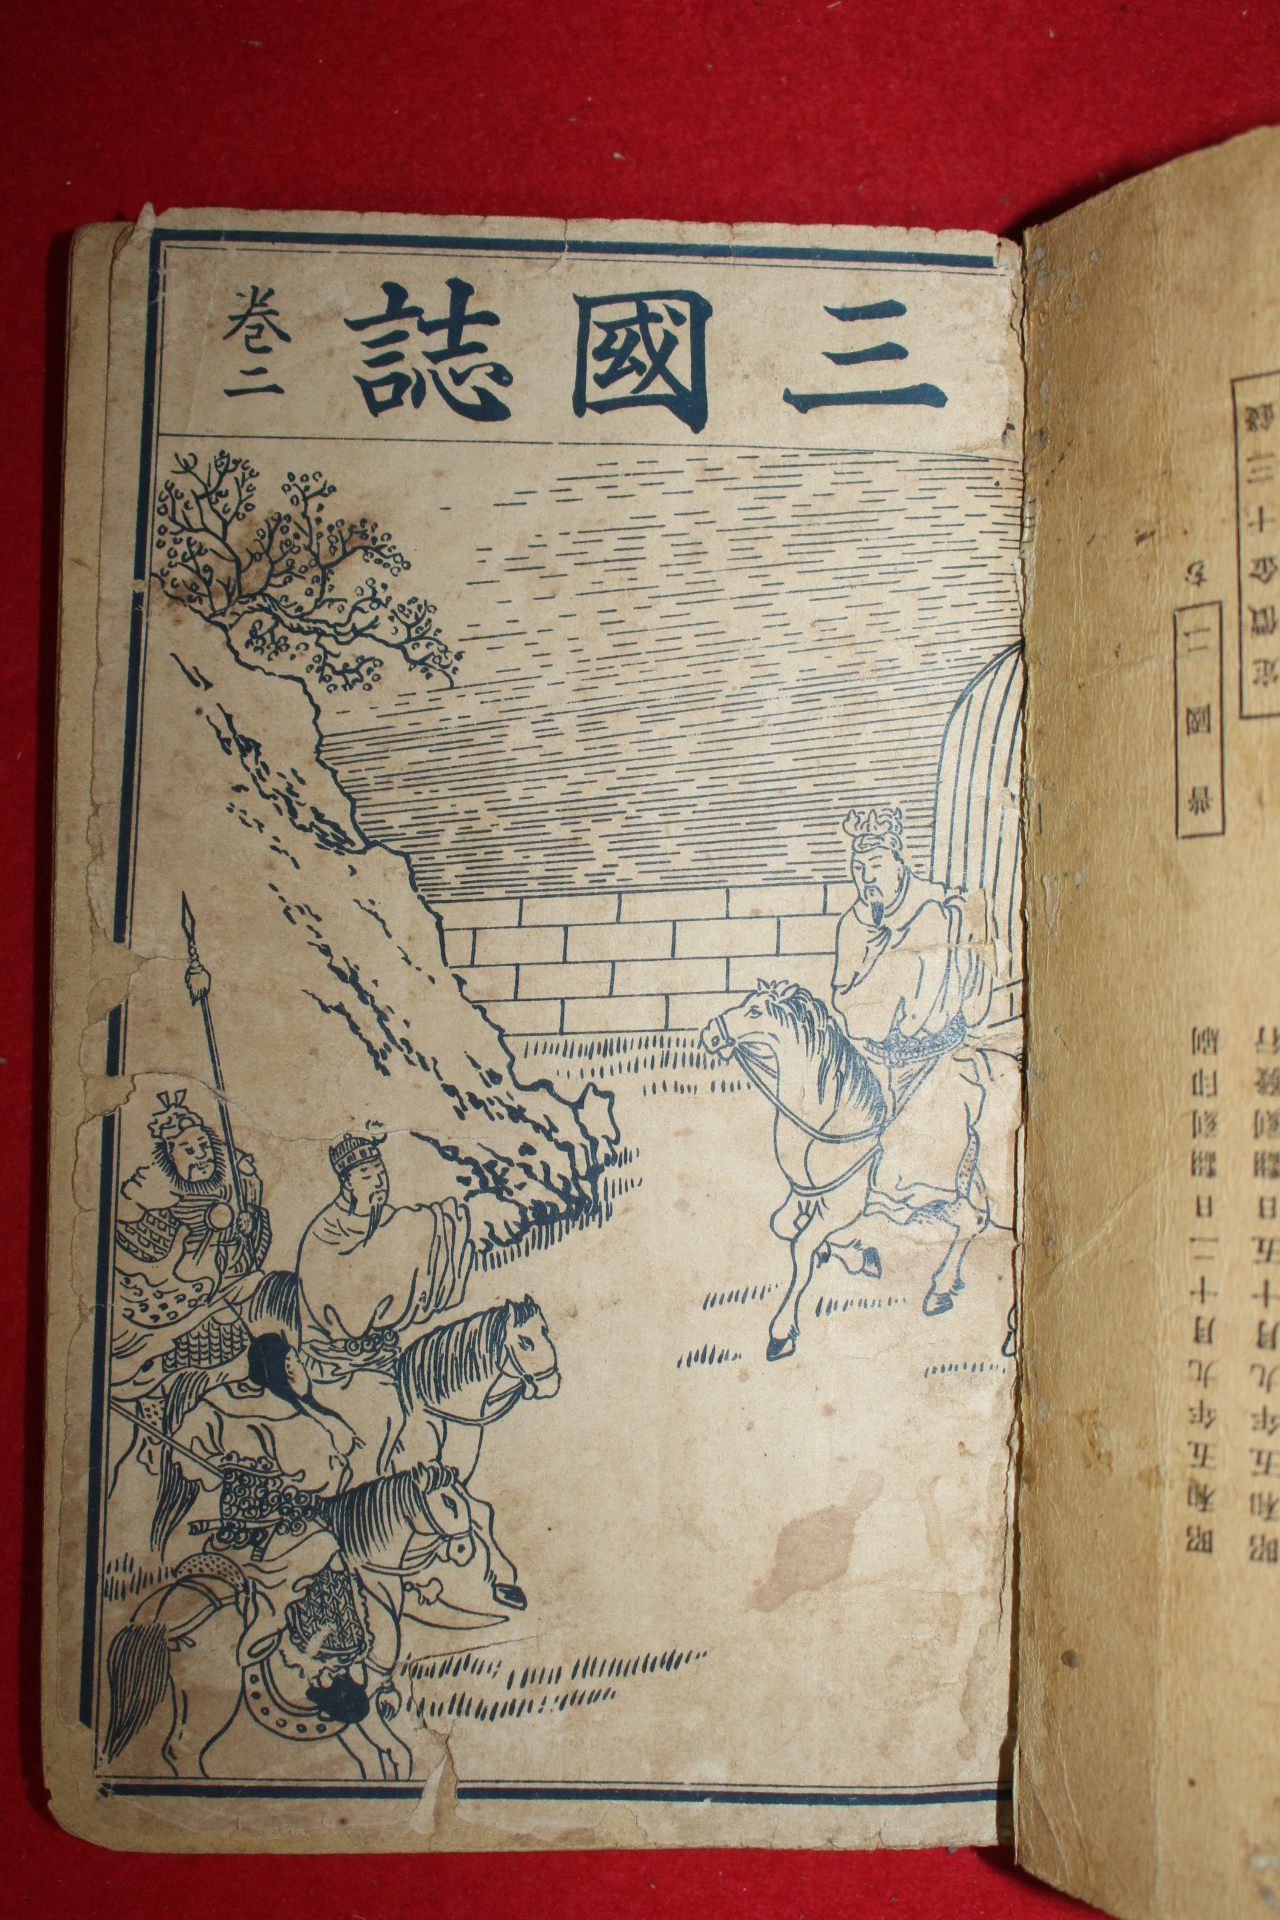 三國誌
卷二
昭和五年九月十二日翻刻印刷
昭和五年九月十五日翻刻發行
普國二
定價金十三錢